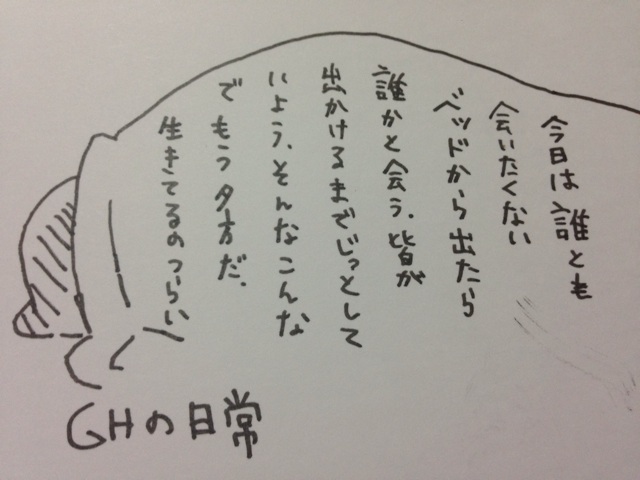 今日は誰とも
会いたくない
ベッドから出たら
誰かと会う、皆が
出かけるまでじっとして
いよう、そんなこんな
でもう夕方だ、
生きてるのつらい
GHの日常